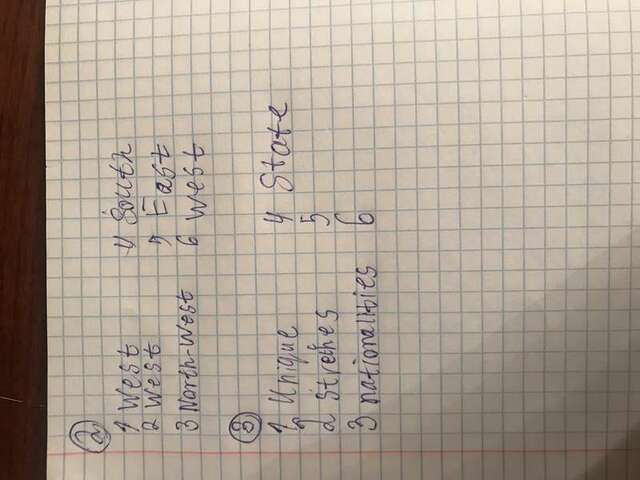 2
1 West
2 West
3 North-West
4 South
5 East
6 West
3
1 Unique
2 Strethes
3 nationalities
4 State
5
6